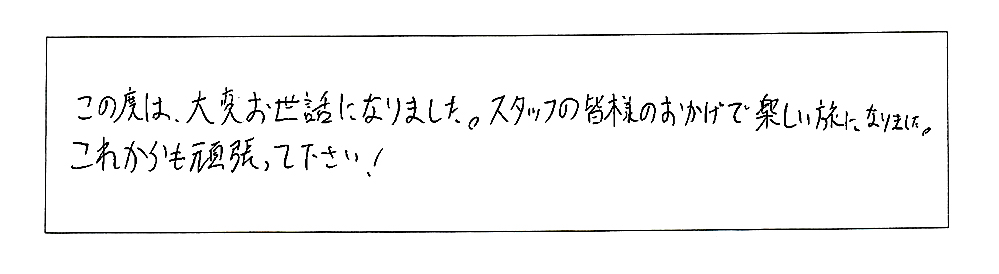 この度は、大変お世話になりました。スタッフの皆様のおかげで楽しい旅になりました。
これからも頑張って下さい!